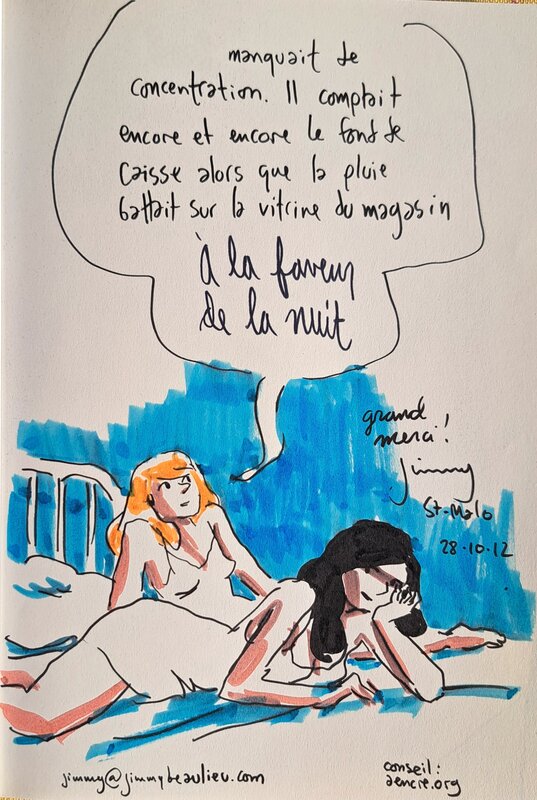 manquait de
concentration. Il comptait
encore et encore le fond de
caisse alors que la pluie
battait sur la vitrine du magasin
à la faveur
de la nuit
grand
merci!
jimmy
St-Malo
28.10.12
jimmy@jimmybeaulieu.com
conseil:
aencre.org